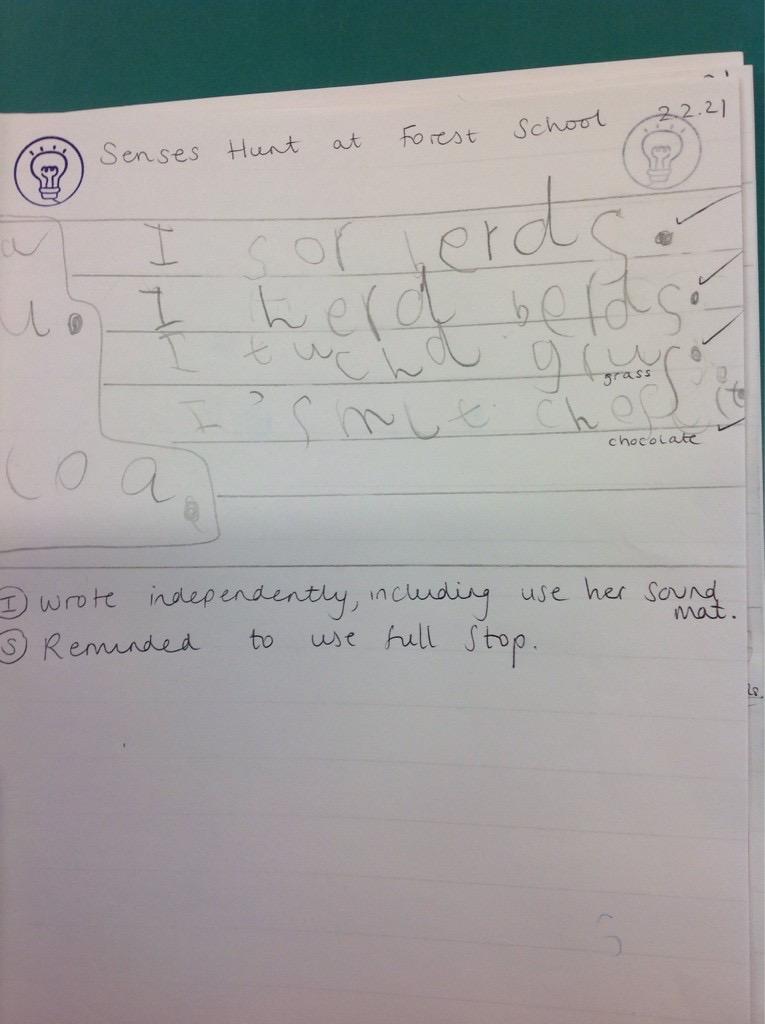 Senses Hunt at Forest School 2.2.21
a
I sor berds.
u. I herd berds.
I tuchd grus.
grass
I smlt
chocolate
coa.
I wrote independently, including use her sound
mat.
S Reminded to use full stop.